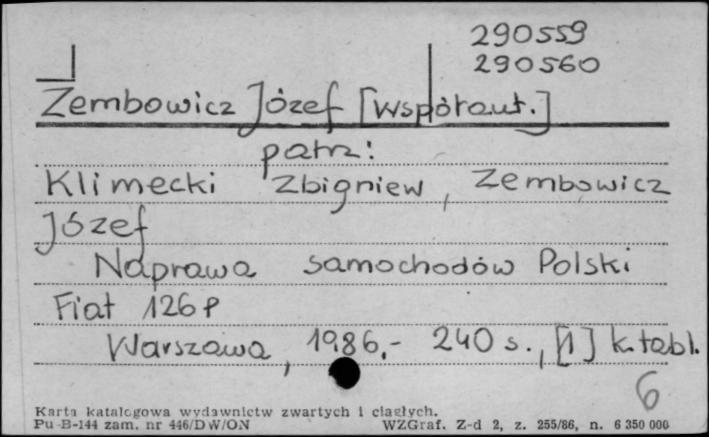 290559
290560
Zembowicz Józef [współaut.]
patrz:
Klimecki Zbigniew, Zembowicz
Józef
Naprawa samochodów Polski
Fiat 126P
Warszawa, 1986.- 240 s., [1] k.tabl.
6
Karta katalogowa wydawnictw zwartych i ciągłych.
Pu-B-144 zam. nr 446/DW/ON WZGraf. Z-d 2, z. 255/86, n. 6 350 000